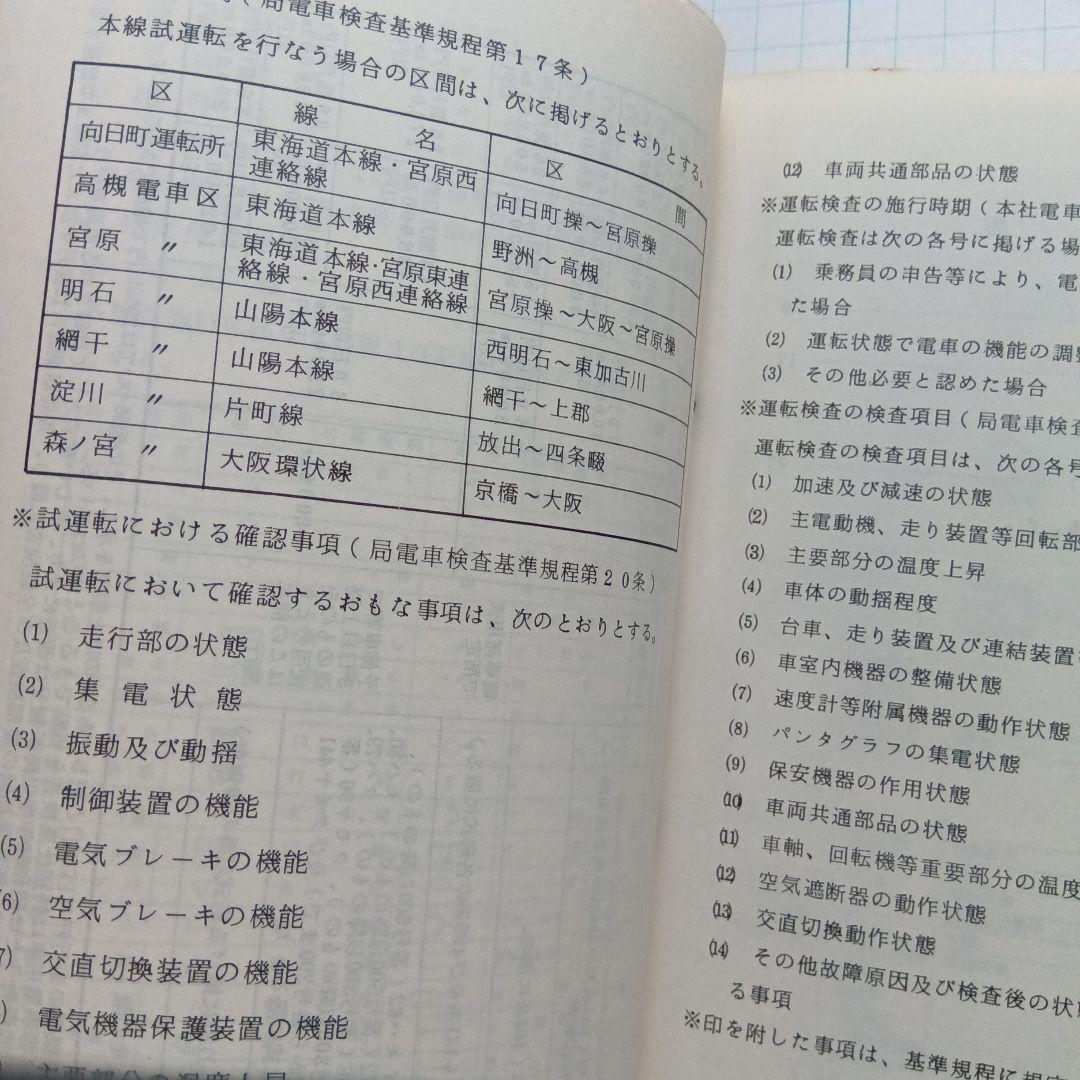 (局電車検査基準規程第17条)
本線試運転を行なう場合の区間は、次に掲げるとおりとする。
区 線名 区間
向日町運転所 東海道本線・宮原西連絡線 向日町操～宮原操
高槻電車区 東海道本線 野洲～高槻
宮原 〃 東海道本線・宮原東連絡線・宮原西連絡線 宮原操～大阪～宮原操
明石 〃 山陽本線 西明石～東加古川
網干 〃 山陽本線 網干～上郡
淀川 〃 片町線 放出～四条畷
森ノ宮 〃 大阪環状線 京橋～大阪
※試運転における確認事項(局電車検査基準規程第20条)
試運転において確認するおもな事項は、次のとおりとする。
(1) 走行部の状態
(2) 集電状態
(3) 振動及び動揺
(4) 制御装置の機能
(5) 電気ブレーキの機能
(6) 空気ブレーキの機能
7) 交直切換装置の機能
) 電気機器保護装置の機能
主要部分の温度上昇
(12) 車両共通部品の状態
※運転検査の施行時期(本社電車
運転検査は次の各号に掲げる場
(1) 乗務員の申告等により、電
た場合
(2) 運転状態で電車の機能の調整
(3) その他必要と認めた場合
※運転検査の検査項目(局電車検査
運転検査の検査項目は、次の各号
(1) 加速及び減速の状態
(2) 主電動機、走り装置等回転部
(3) 主要部分の温度上昇
(4) 車体の動揺程度
(5) 台車、走り装置及び連結装置
(6) 車室内機器の整備状態
(7) 速度計等附属機器の動作状態
(8) パンタグラフの集電状態
(9) 保安機器の作用状態
(10) 車両共通部品の状態
(11) 車軸、回転機等重要部分の温度
(12) 空気遮断器の動作状態
(13) 交直切換動作状態
(14) その他故障原因及び検査後の状
る事項
※印を附した事項は、基準規程に規定